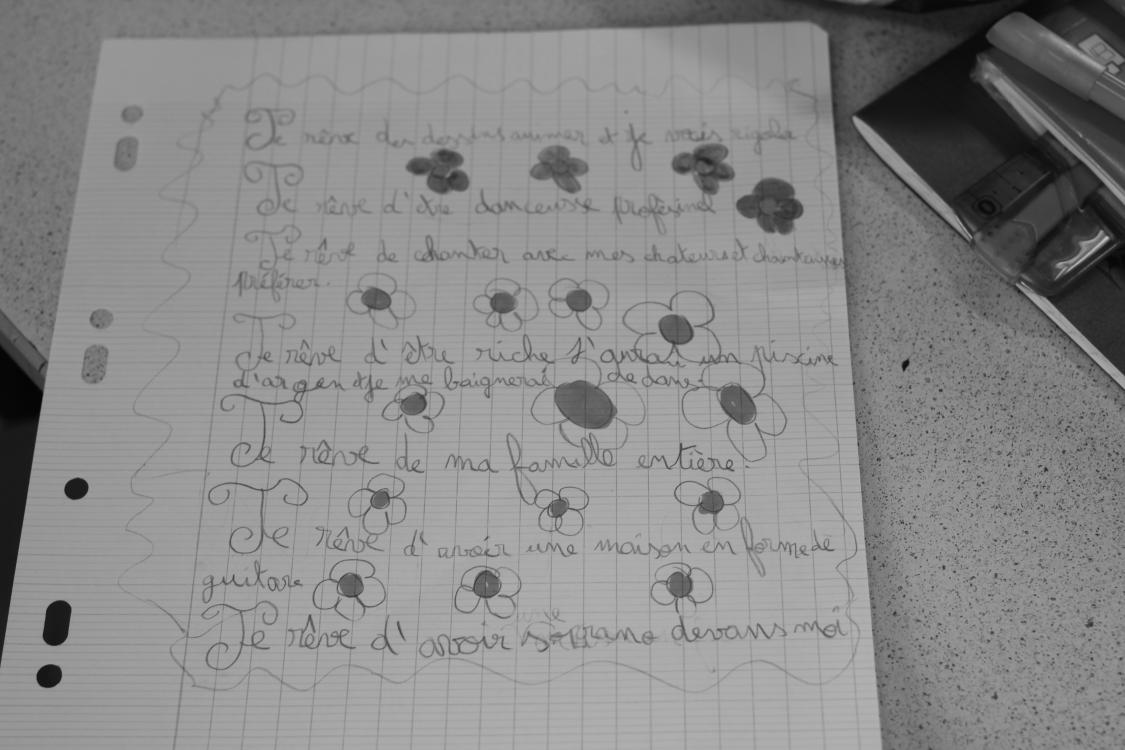 Je rêve des dessins aumer et je vais rigoler
Je rêve d'être danceusse proféinel
Je rêve de chanter avec mes chateurs et chantaizes
préférer.
Je rêve d'être riche J'aurai um piscine
d'argent je me baignerai de dans
Je rêve de ma famille entière.
Je rêve d'avoir une maison en forme de
guitare
Je rêve d'avoir soprano devans moi